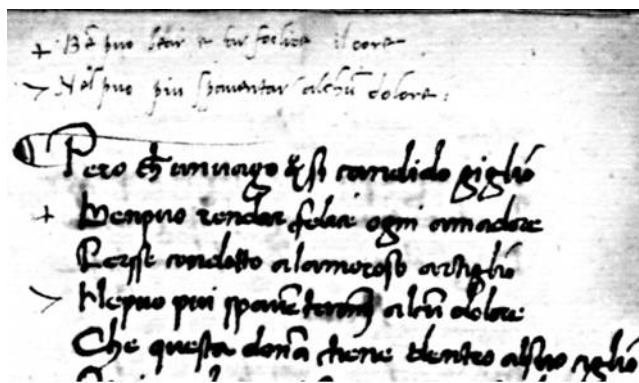 + Bē puo star e tu felice il core
> Nel puo piu spauentar alchū dolore.
Pero ch unuago & si candido giglio
+ Benpuo render felice ogni amadore
Persse condotto alamoroso artiglio
> Nepuo piu spauēterany alcū dolore
Che questa dona tiene dentro alsuo